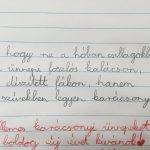 hogy ne a hóban csillagokb
ünnepi foszlós kalácson,
díszített fákon, hanem
szívekben legyen karácsony
Kellemes karácsonyi ünnepeket
boldog új évet kívánok